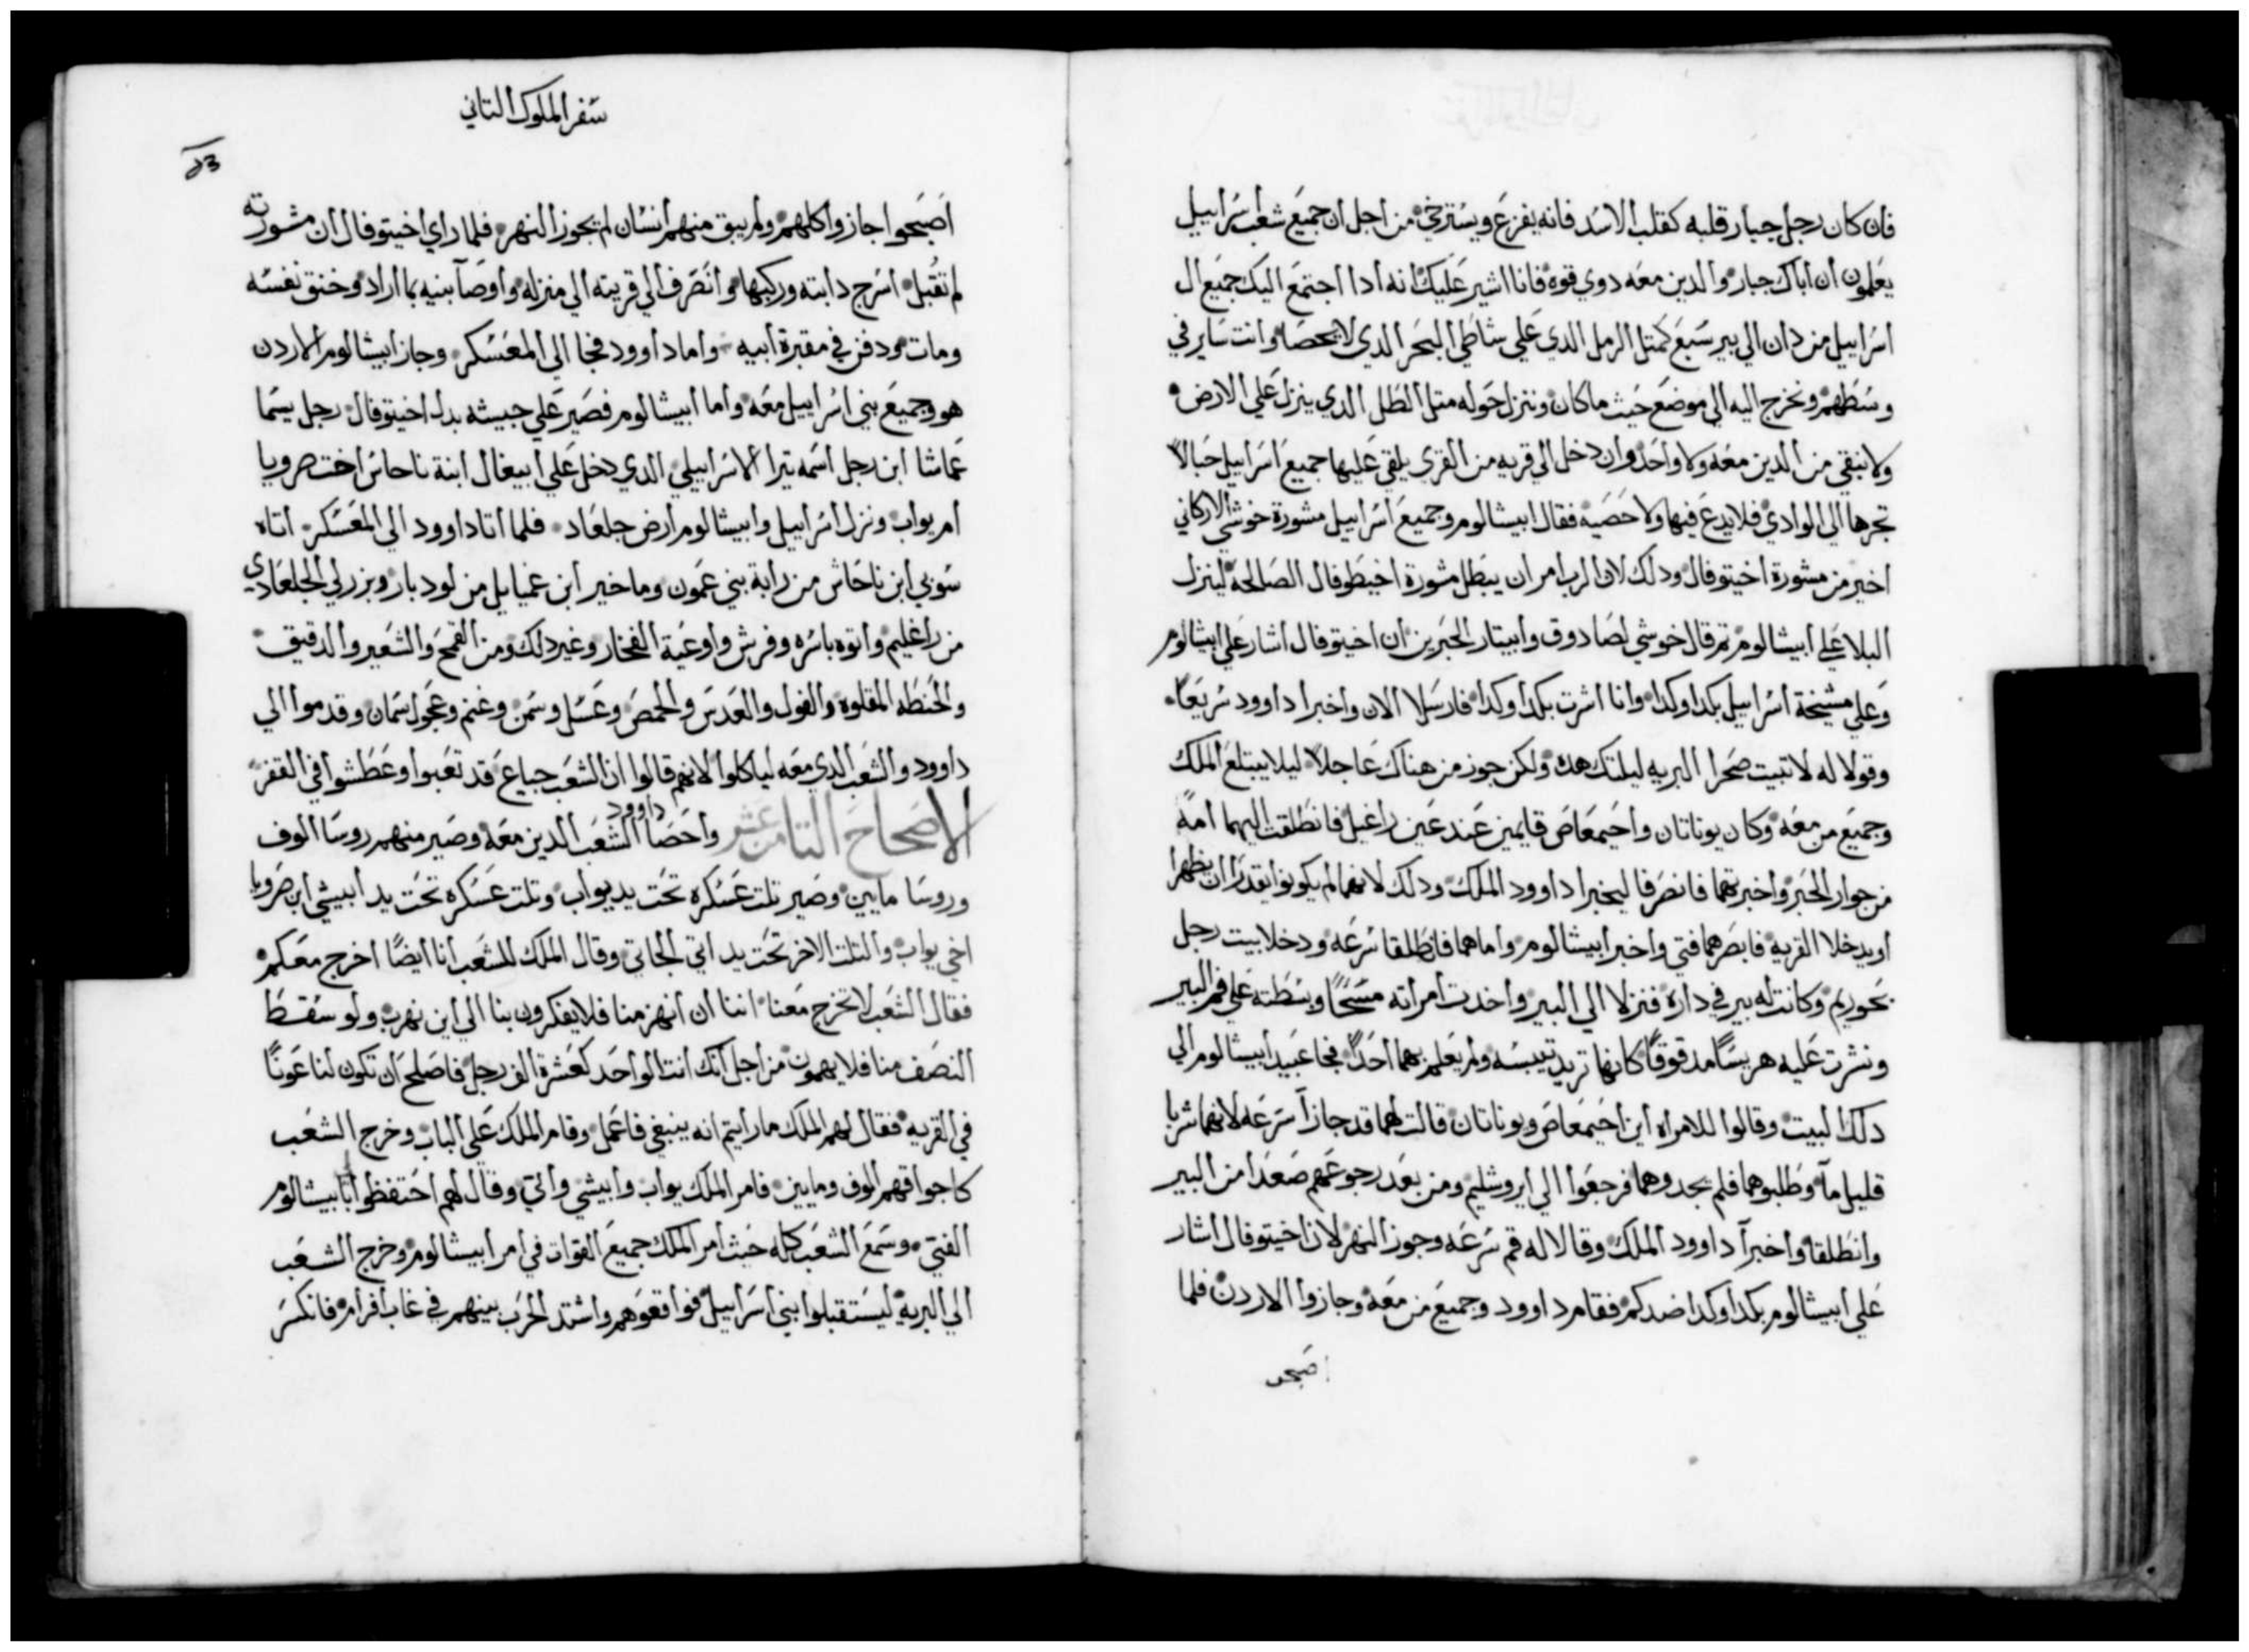 فان كان رجل جبار قلبه كقلب الاسد فانه يفزع ويسترخي من اجل ان جميع شعب اسراييل
يعلمون ان اباك جبار والدين معه دوي قوة فانا اشير عليك انه ادا اجتمع اليك جميع ال
اسراييل من دان الي بير سبع كمتل الرمل الدي علي شاطي البحر الدي لا يحصا وانت ساير في
وسطهم ونخرج اليه الي موضع حيث ما كان وننزل حوله متل الطل الدي ينزل علي الارض
ولا نبقي من الدين معه ولا واحد وان دخل الي قريه من القري يلقي عليها جميع اسراييل حبالا
تجرها الي الوادي فلا يدع فيها ولا حصيه فقال ابيشالوم وجميع اسراييل مشورة خوشي الاركاني
اخير من مشورة اخيتوفال ودلك لان الرب امر ان يبطل مشورة اخيطوفال الصالحة لينزل
البلا علي ابيشالوم تم قال خوشي لصادوق وابيتار الحبرين ان اخيتوفال اشار علي ابيشالوم
وعلي مشيخة اسراييل بكدا وكدا وانا اشرت بكدا وكدا فارسلا الان واخبرا داوود سريعا
وقولا له لا تبيت صحرا البريه ليلتك هده ولكن جوز من هناك عاجلا ليلا يبتلع الملك
وجميع من معه وكان يوناتان واحيمعاص قايمين عند عين راغيل فانطلقت اليهما امة
من جوار الحبر واخبرتهما فانصرفا ليخبرا داوود الملك ودلك لانهما لم يكونوا يقدرا ان يظهرا
او يدخلا القريه فابصرهما فتي واخبر ابيشالوم واما هما فانطلقا سرعه ودخلا بيت رجل
بحوريم وكانت له بير في داره فنزلا الي البير واخدت امراته مسحا وبسطته علي فم البير
ونشرت عليه هريسا مدقوقا كانها تريد تيبسه ولم يعلم بهما احدا فجا عبيد ابيشالوم الي
دلك البيت وقالوا للامراه اين احيمعاص ويوناتان قالت لهما قد جازا سرعه لانهما شربا
قليل ما وطلبوهما فلم يجدوهما فرجعوا الي ايروشليم ومن بعد رجوعهم صعدا من البير
وانطلقا واخبرا داوود الملك وقالا له قم سرعه وجوز النهر لان اخيتوفال اشار
علي ابيشالوم بكدا وكدا ضدكم فقام داوود وجميع من معه وجازوا الاردن فلما
اصبحو
سفر الملوك التاني
اصبحوا جازوا كلهم ولم يبق منهم انسان لم يجوز النهر فلما راي اخيتوفال ان مشورته
لم تقبل اسرج دابته وركبها وانصرف الي قريته الي منزله واوصا بنيه بما اراد وخنق نفسه
ومات ودفن في مقبرة ابيه واما داوود فجا الي المعسكر وجاز ابيشالوم الاردن
هو وجميع بني اسراييل معه واما ابيشالوم فصير علي جيشه بدل اخيتوفال رجل يسما
عماشا ابن رجل اسمه يترا الاسراييلي الدي دخل علي ابيغال ابنة ناحاس اخت صرويا
ام يواب ونزل اسراييل وابيشالوم ارض جلعاد فلما اتا داوود الي المعسكر اتاه
سوبي ابن ناحاش من رابة بني عمون وماخير ابن عميايل من لودبار وبرزلي الجلعادي
من راغليم واتوه باسره وفرش واوعية الفخار وغير دلك ومن القمح والشعير والدقيق
والحنطه المقلوه والفول والعدس والحمص وعسل وسمن وغنم وعجول سمان وقدموا الي
داوود والشعب الدي معه لياكلوا لانهم قالوا ان الشعب جياع قد تعبوا وعطشوا في القفز
الاصحاح التامن عشر واحصا داوود الشعب الدين معه وصير منهم روسا الوف
وروسا مايين وصير تلت عسكره تحت يد يواب وتلت عسكره تحت يد ابيشي ابن صرويا
اخي يواب والتلت الاخر تحت يد اتي الجاتي وقال الملك للشعب انا ايضا اخرج معكم
فقال الشعب لا تخرج معنا اننا ان انهزمنا فلا يفكرون بنا الي اين نهرب ولو سقط
النصف منا فلا يهمون من اجل انك انت الواحد كعشرة الف رجل فاصلح ان تكون لنا عونا
في القريه فقال لهم الملك ما رايتم انه ينبغي فاعمل وقام الملك علي الباب وخرج الشعب
كاجواقهم الوف ومايين فامر الملك يواب وابيشي واتي وقال لهم احتفظوا بابيشالوم
الفتي وسمع الشعب كله حيث امر الملك جميع القواد في امر ابيشالوم وخرج الشعب
الي البريه ليستقبلوا بني اسراييل فواقعوهم واشتد الحرب بينهم في غاب افرام فانكسر